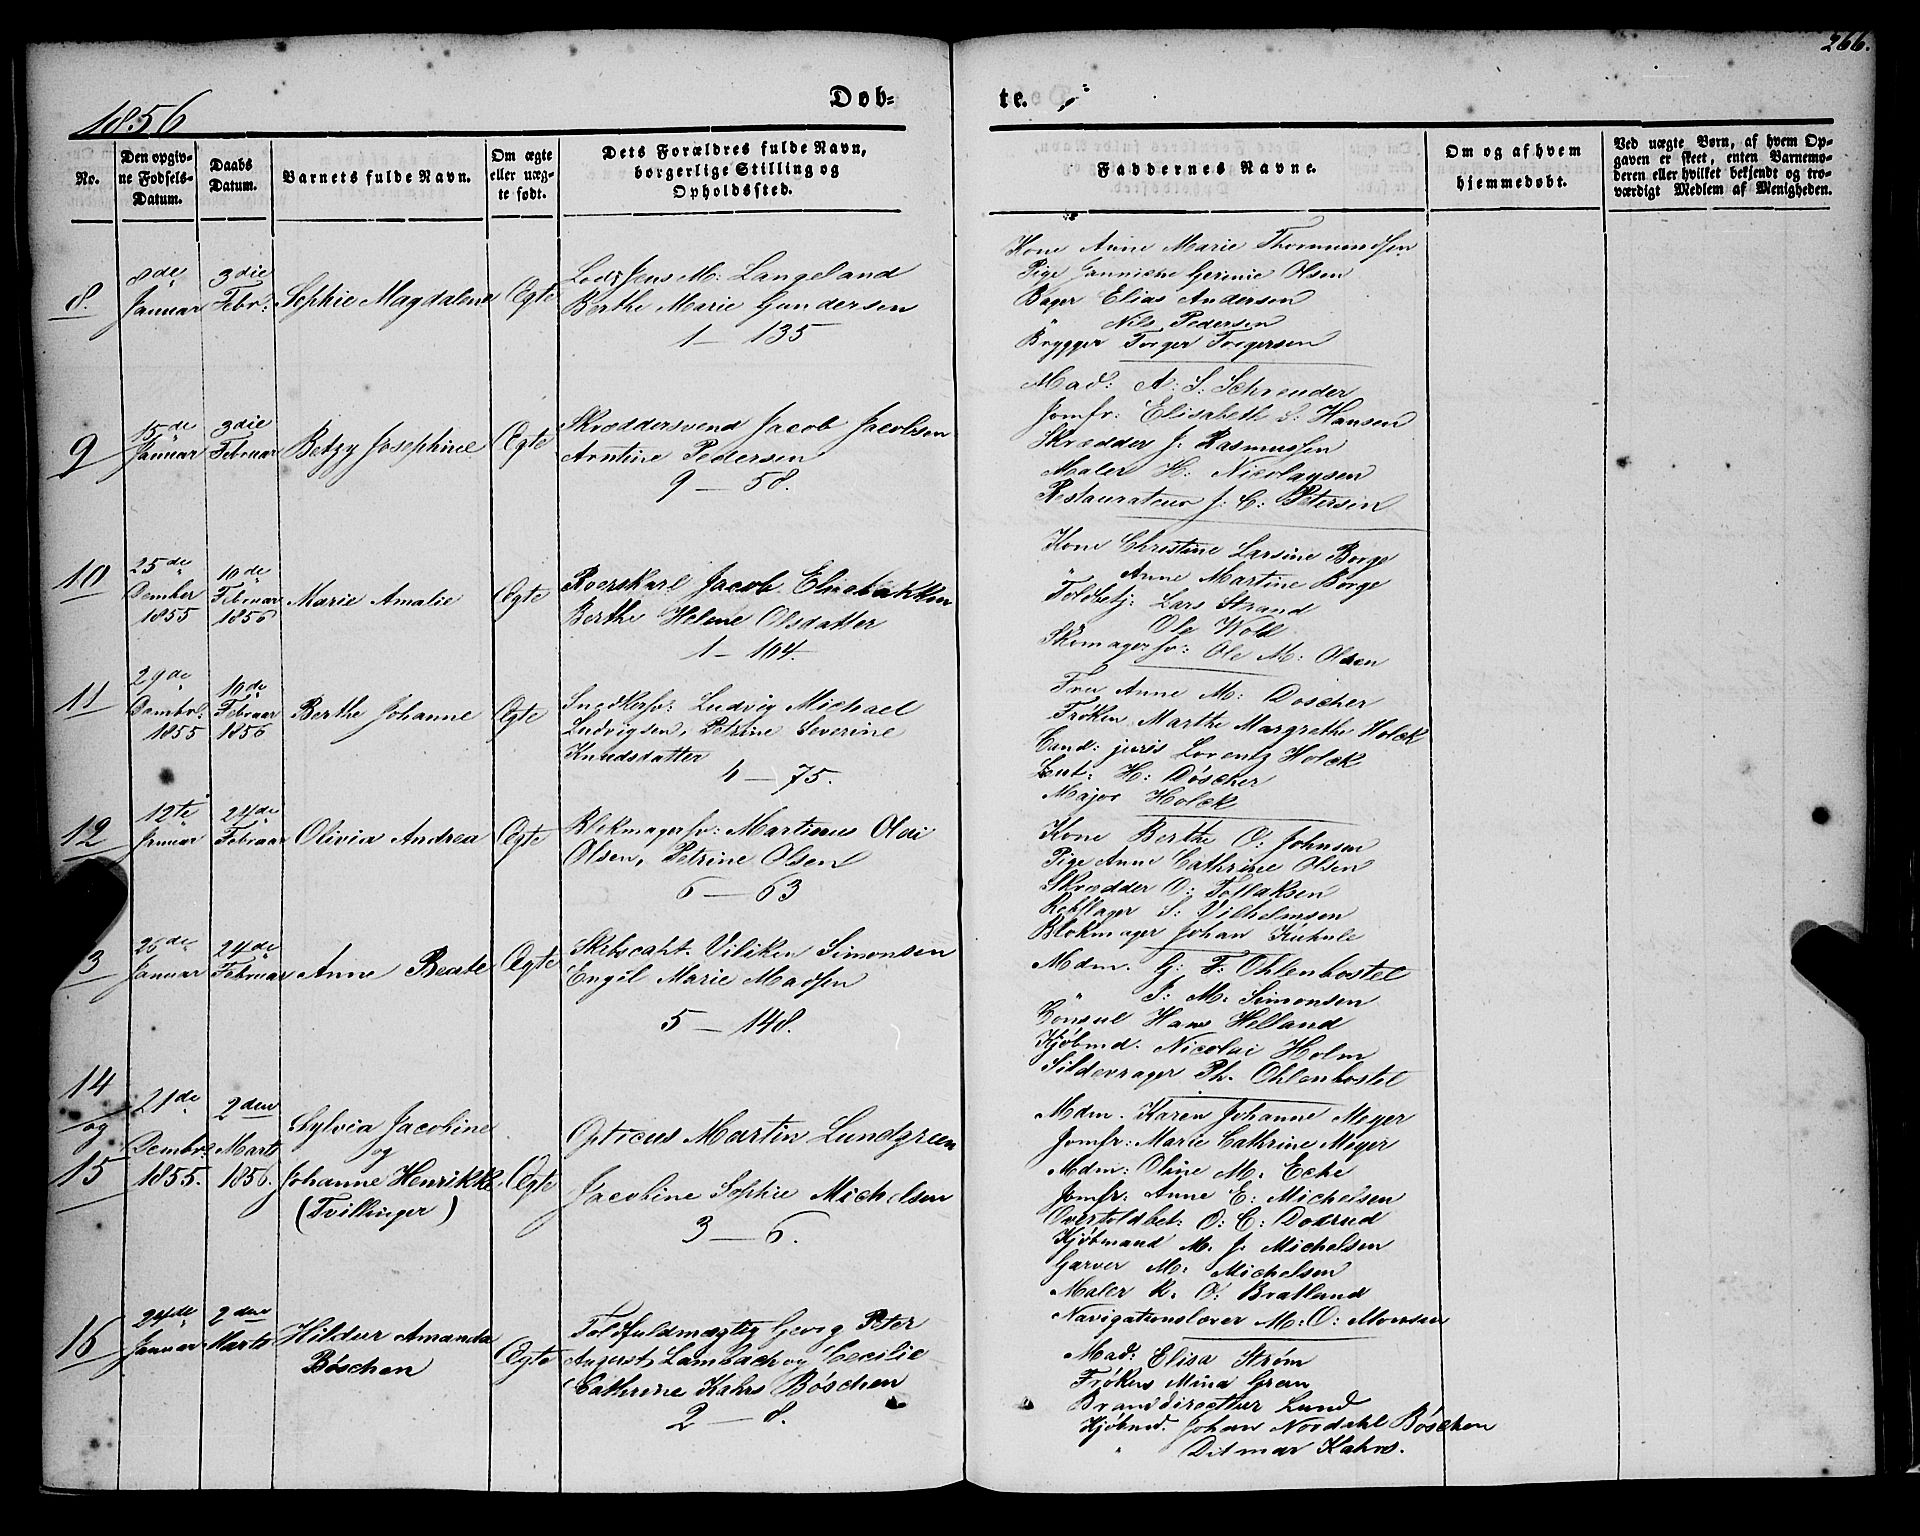 266.
1856
Døb-
te.
No.
Den opgiv-
ne Fødsels-
Datum.
Daabs
Datum.
Barnets fulde Navn.
Om ægte
eller uæg-
te født.
Dets Forældres fulde Navn,
borgerlige Stilling og
Opholdssted.
Faddernes Navne.
Om og af hvem
hjemmedøbt.
Ved uægte Børn, af hvem Op-
gaven er skeet, enten Barnemo-
deren eller hvilket bekjendt og tro-
værdigt Medlem af Menigheden.
8.
8de
Januar
3die
Febr:
Sophie Magdalena
Ægte
Lods Jens M: Langeland
Berthe Marie Gundersen
1 — 135
Kone Anne Marie Thormundsen
Pige Janniche Gerinie Olsen
Bager Elias Andersen
" Nils Pedersen
Brygger Torger Torgersen
9
15de
Januar
3die
Februar
Betzy Josephine
Ægte
Skræddersvend Jacob Jacobsen
Arntine Pedersen
9 — 58.
Mad: A: S: Schreuder
Jomfr: Elisabeth S: Hansen
Skrædder J: Rasmussen
Maler H: Nicolaysen
Restaurateur J: C: Petersen
10
25de
Dember
1855
10de
Februar
1856
Marie Amalie
Ægte
Roerskarl Jacob Eliebakken
Berthe Helene Olsdatter
1 — 104.
Kone Christine Larsine Borge
" Anne Martine Borge
Toldbetj: Lars Strand
" Ole Wold
Skomagersv: Ole M: Olsen
11
29de
Dembr:
1855
10de
Februar
1856
Berthe Johanne
Ægte
Snedkersv: Ludvig Michael
Ludvigsen, Petrine Severine
Knudsdatter
4 — 75.
Fru Anne M: Doscher
Frøken Marthe Margrethe Holck
Cand: juris Lorentz Holck
Lieut: H: Döscher
Major Holck
12
12te
Januar
24de
Februar
Olivia Andrea
Ægte
Blokmagersv: Martinus Olai
Olsen, Petrine Olsen
6 — 63
Kone Berthe O: Johnsen
Pige Anne Cathrine Olsen
Skrædder O: Tollaksen
Rebslager S: Vilhelmsen
Blokmager Johan Kuhnle
3
26de
Januar
24de
Februar
Anne Beate
Ægte
Skibscapt. Viliken Simonsen
Engel Marie Madsen
5 — 148.
Mdm. G: F: Ohlenbostel
" J: M: Simonsen
Konsul Hans Helland
Kjöbmd. Nicolai Holm
Sildevrager Ph. Ohlenbostel
14
og
15
21de
Dembr:
1855.
2den
Marts
1856.
Sylvia Jacobine
og
Johanne Henrikke
(Tvillinger)
Ægte
Opticus Martin Lundgreen
Jacobine Sophie Michelsen
3 — 6.
Mdm. Karen Johanne Meyer
Jomfr: Marie Cathrine Meyer
Mdm: Oline M: Eche
Jomfr: Anne E: Michelsen
Overtoldbet: O: C: Doxrud
Kjöbmand M. J. Michelsen
Garver M: Michelsen
Maler K. O: Bratland
Navigationslærer M: O: Monsen
16
24de
Januar
2den
Marts
Hildur Amanda
Böschen
Ægte
Toldfuldmægtig Georg Peter
August Lambach og Cecilie
Cathrine Kahrs Böschen
2 — 8.
Mad: Elisa Strøm
Frøken Mina Gran
Branddirecteur Lund
Kjöbmd. Johan Nordahl Böschen
" Ditmar Kahrs.